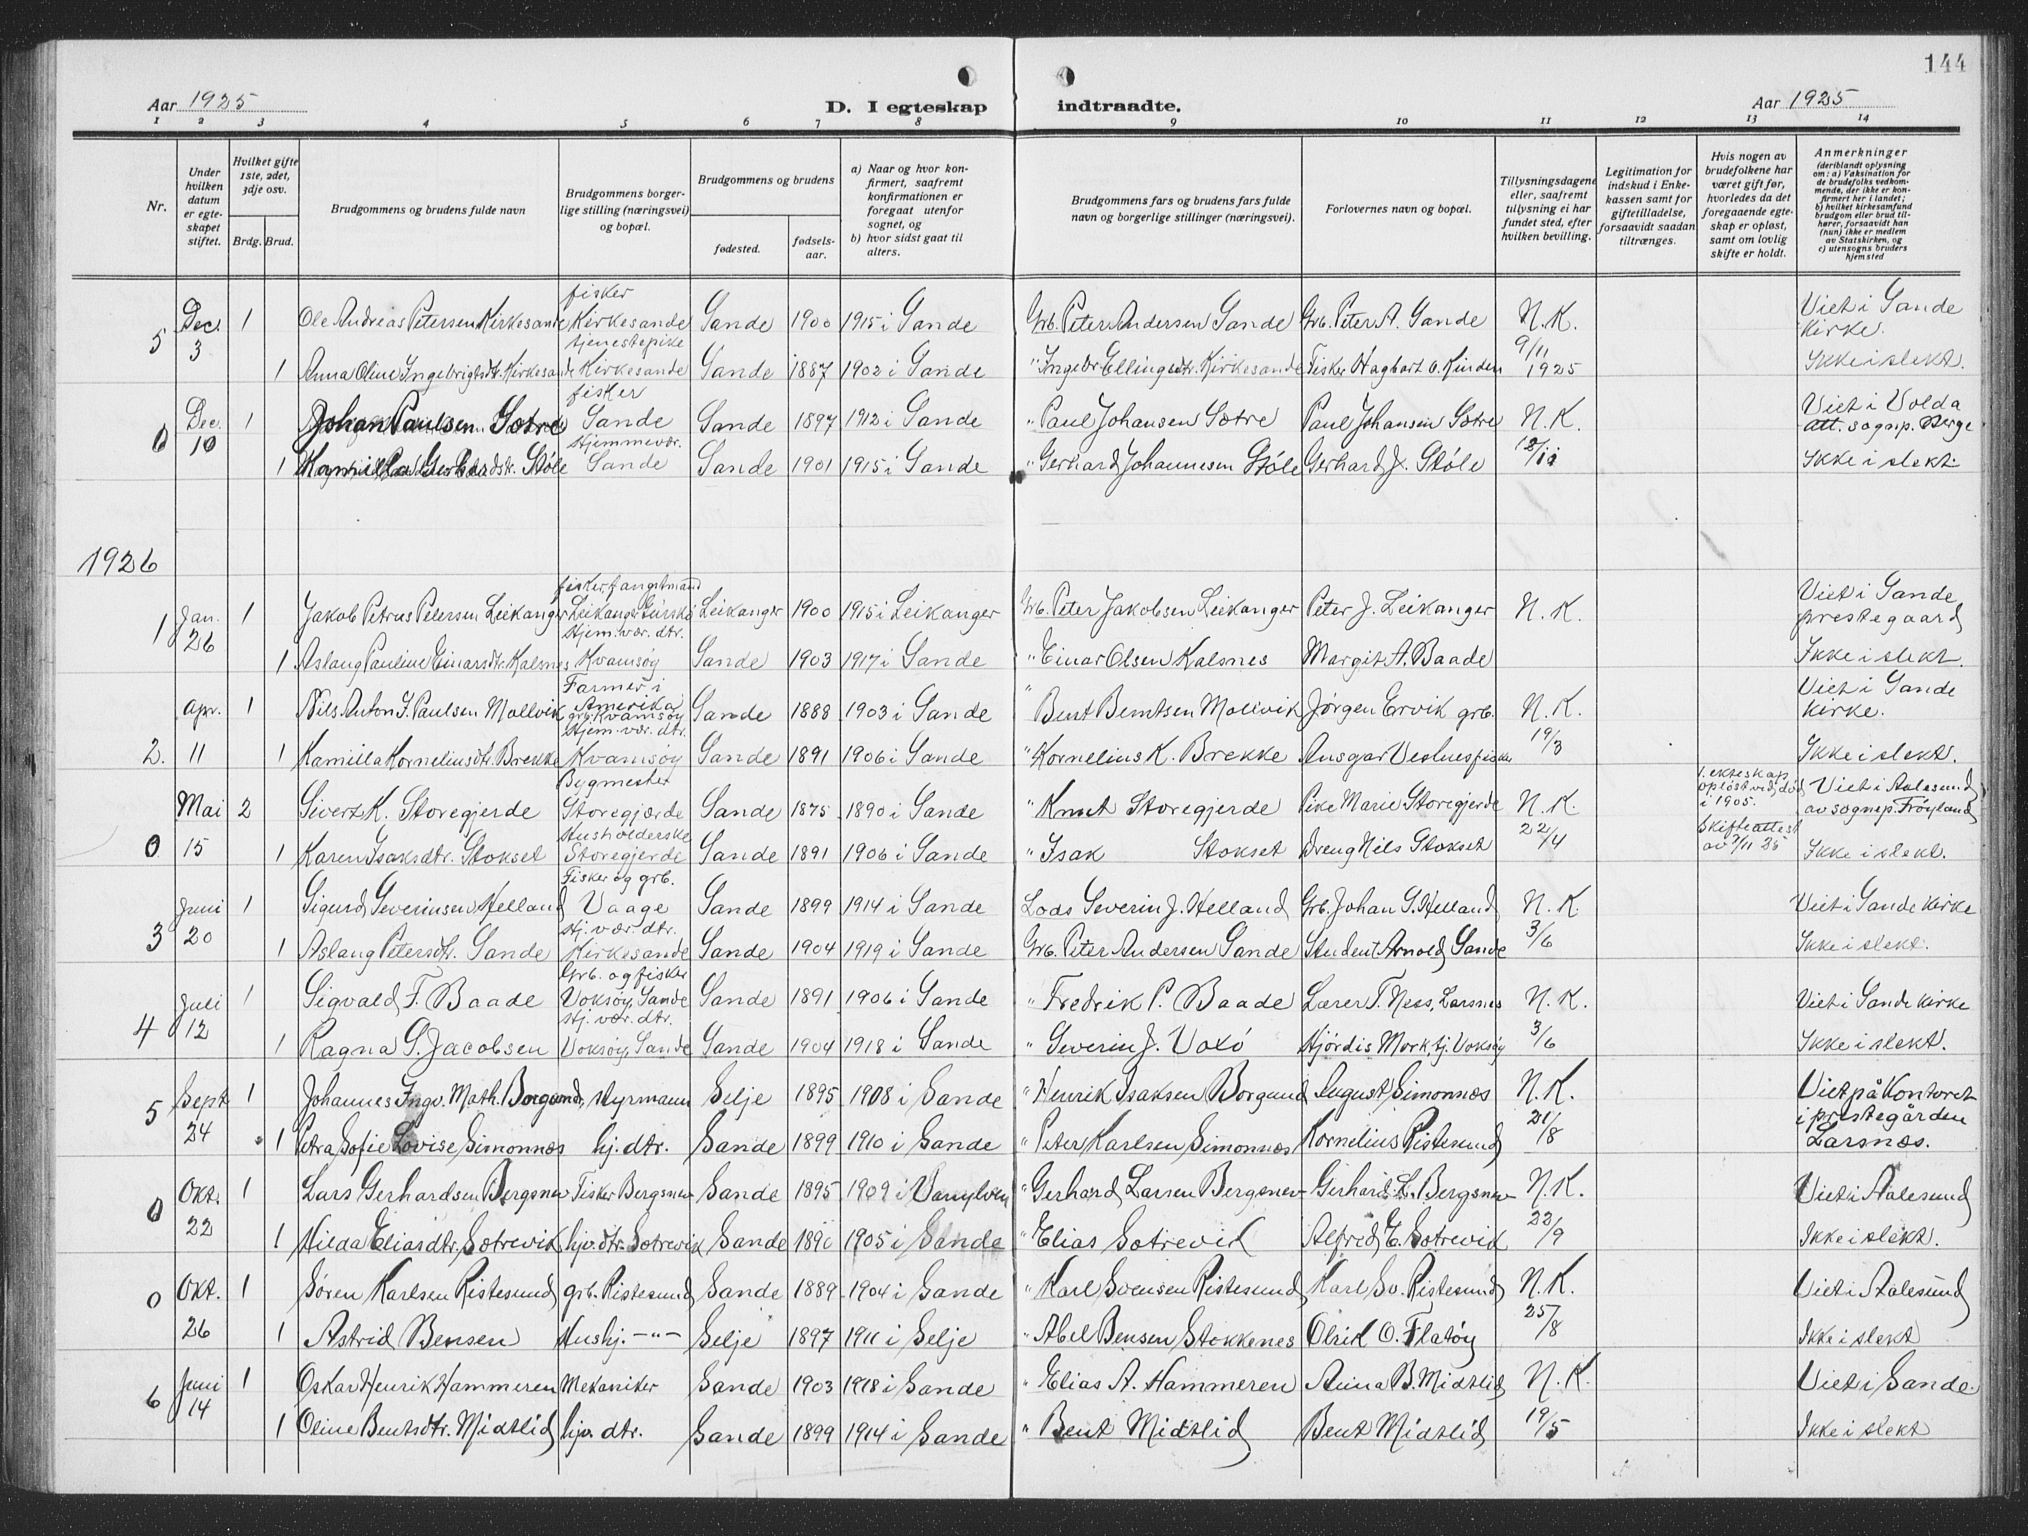 144
Aar 1925 D. I egteskap indtraadte. Aar 1925
1 2 3 4 5 6 7 8 9 10 11 12 13 14
Nr.
Under hvilken datum er egte-skapet stiftet.
Hvilket gifte 1ste, 2det, 3dje osv.
Brdg. Brud.
Brudgommens og brudens fulde navn
Brudgommens borger-lige stilling (næringsvei) og bopæl.
Brudgommens og brudens
fødested.
fødsels-aar.
a) Naar og hvor kon-firmert, saafremt konfirmationen er foregaat utenfor sognet, og
b) hvor sidst gaat til alters.
Brudgommens fars og brudens fars fulde navn og borgerlige stillinger (næringsvei).
Forlovernes navn og bopæl.
Tillysningsdagene eller, saafremt tillysning ei har fundet sted, efter hvilken bevilling.
Legitimation for indskud i Enke-kassen samt for giftetilladelse, forsaavidt saadan tiltrænges.
Hvis nogen av brudefolkene har været gift før, hvorledes da det foregaaende egte-skap er opløst, samt om lovlig skifte er holdt.
Anmerkninger
(deriblandt oplysning om: a) Vaksination for de brudefolks vedkom-mende, der ikke er kon-firmert her i landet;
b) hvilket kirkesamfund brudgom eller brud til-hører, forsaavidt han (hun) ikke er medlem av Statskirken, og
c) utensogns bruders hjemsted
5 Dec. 3 1 Ole Andreas Petersen Kirkesande fisker Kirkesande Sande 1900 1915 i Sande Grb. Peter Andersen Sande Grb. Peter A. Sande N.K. Viet i Sande kirke.
1 Anna Oline Ingebrigtsdtr. Kirkesande tjenestepike Kirkesande Sande 1887 1902 i Sande " Ingebr Ellingsdtr. Kirkesande Fisker Hagbart O. Kinden 9/11 1925 Ikke i slekt.
0 Dec. 10 1 Johan Paulsen Sætre fisker Sande Sande 1897 1912 i Sande " Paul Johansen Sætre Paul Johansen Sætre N.K. Viet i Volda att. sognp. Berge
1 Kamilla Gerhardstr. Støle Hjemmevær. Sande Sande 1901 1915 i Sande " Gerhard Johannesen Støle Gerhard J. Støle 12/11 Ikke i slekt.
1926
1 Jan. 26 1 Jakob Petrus Petersen Leikanger fisker, fangstmand Leikanger Gurskø Leikanger 1900 1915 i Leikanger Grb. Peter Jakobsen Leikanger Peter J. Leikanger N.K. Viet i Sande prestegaard
1 Aslaug Pauline Einarsdtr. Kalsnes Hjem. vær. dtr. Kvamsøy Sande 1903 1917 i Sande " Einar Olsen Kalsnes Margit A. Baade Ikke i slekt.
2. Apr. 11 1 Nils Anton J. Paulsen Mollvik Farmer i Amerika grb. Kvamsøy Sande 1888 1903 i Sande " Bent Berntsen Mollvik Jørgen Ervik grb. N.K. Viet i Sande kirke.
1 Kamilla Korneliusdtr. Brekke Hjem. vær. dtr. Kvamsøy Sande 1891 1906 i Sande " Kornelius K. Brekke Ansgar Vestnes fisker 19/3 Ikke i slekt.
0 Mai 15 2 Sivert K. Storegjerde Bygmester Storegjærde Sande 1875 1890 i Sande " Knut Storegjerde Pike Marie Storegjerde N.K. 1. ekteskap opløst ved død i 1905. Viet i Aalesund av sognep. Frøyland
1 Karen Isaksdtr. Stokset Husholderske Storegjerde Sande 1891 1906 i Sande " Isak Stokset Dreng Nils Stokset 22/4 Skifteattest av 7/11 25 Ikke i slekt.
3 Juni 20 1 Sigurd Severinsen Helland Fisker og grb. Vaage Sande 1899 1914 i Sande Lods Severin J. Helland Grb. Johan S. Helland N.K. Viet i Sande kirke
1 Aslaug Petersdtr. Sande Hj. vær. dtr. Kirkesande Sande 1904 1919 i Sande Grb. Peter Andersen Sande Student Arnold Sande 3/6 Ikke i slekt.
4 Juli 12 1 Sigvald F. Baade Grb. og fisker Voksøy, Sande Sande 1891 1906 i Sande " Fredrik P. Baade Lærer T. Ness, Larsnes N.K. Viet i Sande kirke
1 Ragna S. Jacobsen Hj. vær. dtr. Voksøy, Sande Sande 1904 1918 i Sande " Severin J. Voxö Hjördis Mork, hj. Voksöy 3/6 Ikke i slekt.
5 Sept 24 1 Johannes Ingv. Math. Borgund, styrmann Selje 1895 1908 i Sande " Henrik Isaksen Borgund August Simonnæs N.K. Viet på kontoret i prestegården Larsnæs.
1 Petra Sofie Lovise Simonnæs hj. dtr. Sande 1899 1910 i Sande " Peter Karlsen Simonnæs Kornelius Ristesund 21/8
0 Okt. 22 1 Lars Gerhardsen Bergsnev Fisker Bergsnev Sande 1895 1909 i Vanylven " Gerhard Larsen Bergsnev Gerhard L. Bergsnev N.K. Viet i Aalesund
1 Hilda Eliasdtr. Sætrevik hjv. dtr. Sætrevik Sande 1890 1905 i Sande " Elias Sætrevik Alfred E. Sætrevik 22/9 Ikke i slekt.
0 Okt. 26 1 Søren Karlsen Ristesund grb. Ristesund Sande 1889 1904 i Sande " Karl Svensen Ristesund Karl Sv. Ristesund N.K. Viet i Aalesund
1 Astrid Bensen Hushj. -"- Selje 1897 1911 i Selje " Abel Bensen Stokkenes Olrik O. Flatøy 25/8 Ikke i slekt
6 Juni 14 1 Oskar Henrik Hammeren Mekaniker Sande 1903 1918 i Sande " Elias A. Hammeren Anna B. Midtlid N.K. Viet i Sande.
1 Oline Bentsdtr. Midtlid hjv. dtr. Sande 1899 1914 i Sande " Bent Midtlid Bent Midtlid 19/5 Ikke i slekt